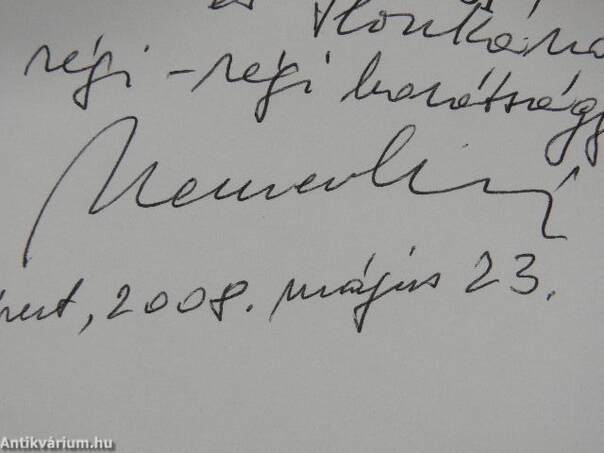 és Ilonkána
régi-régi barátságg
hert, 2008. május 23.
Antikvárium.hu